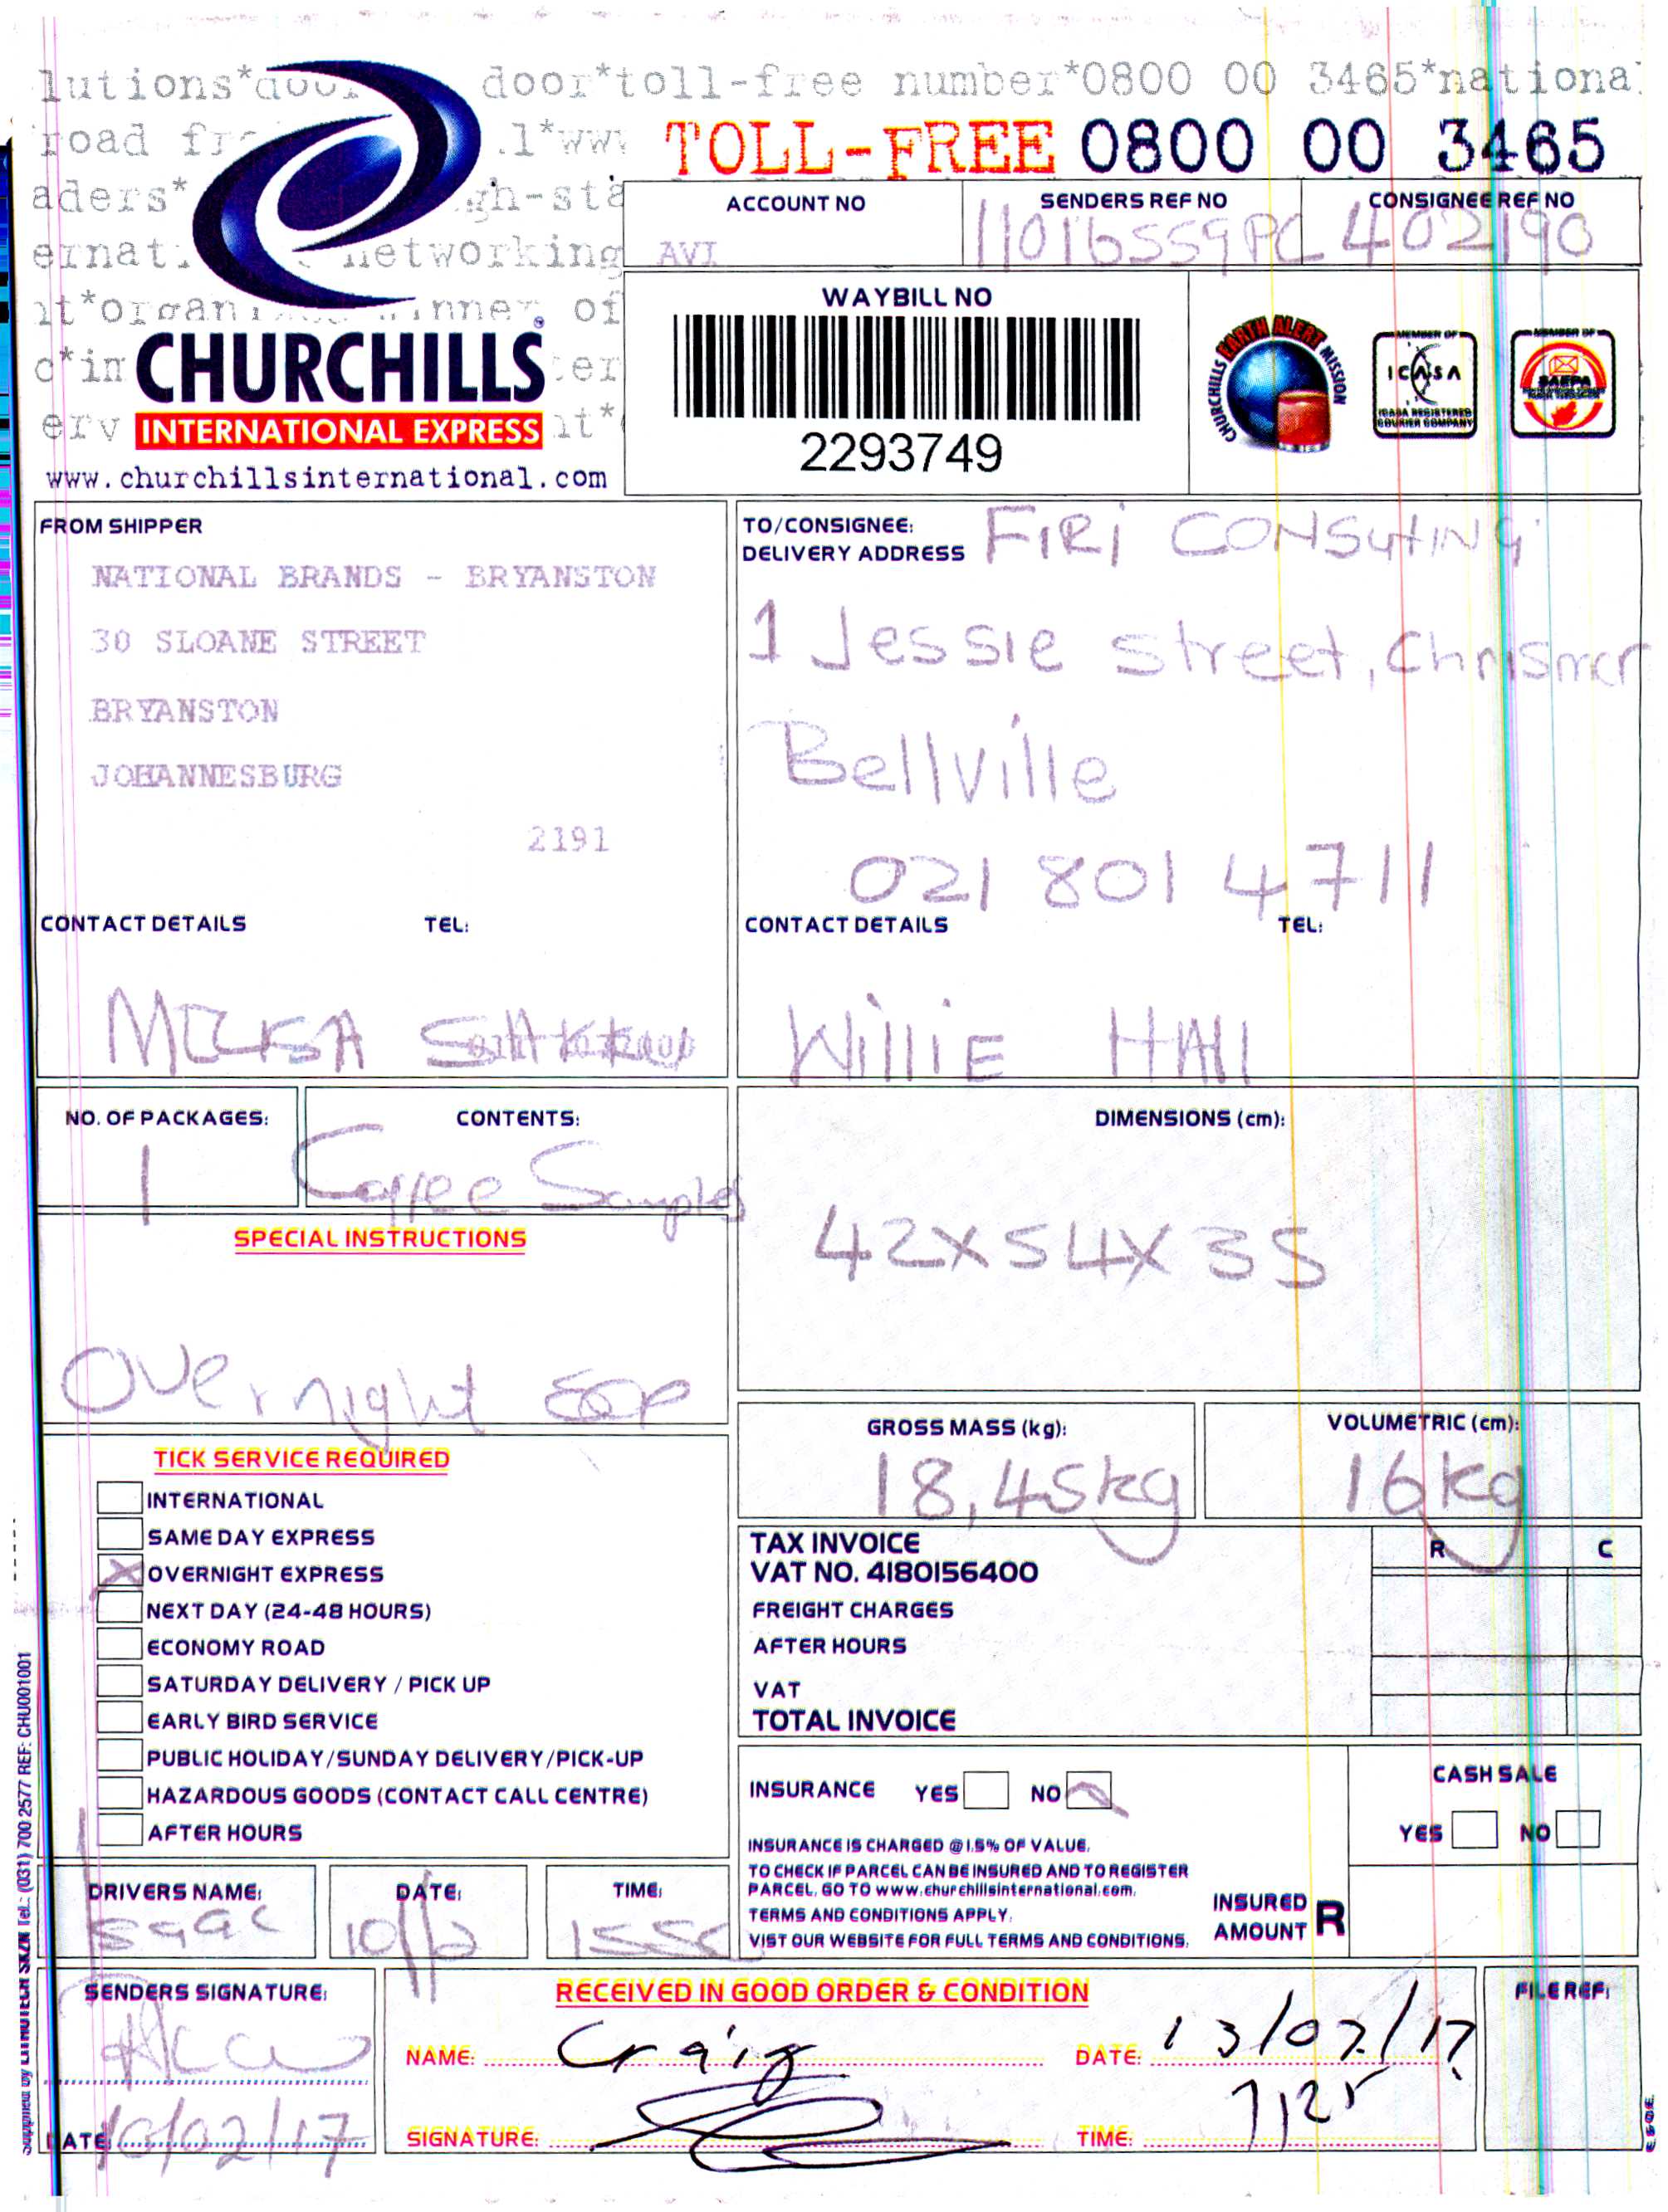 lutions*door door*toll-free number*0800 00 3465*national
road fr .l*www TOLL-FREE 0800 00 3465
aders* gh-sta
ernat networking
of
CHURCHILLS
INTERNATIONAL EXPRESS
www.churchillsinternational.com
ACCOUNT NO
AVI
SENDERS REF NO
11016559PC
CONSIGNEE REF NO
402190
WAYBILL NO
2293749
CHURCHILLS EARTH ALERT MISSION
MEMBER OF
ICASA
ICASA REGISTERED
COURIER COMPANY
MEMBER OF
SAEPA
FROM SHIPPER
NATIONAL BRANDS - BRYANSTON
30 SLOANE STREET
BRYANSTON
JOHANNESBURG
2191
CONTACT DETAILS TEL:
TO/CONSIGNEE:
DELIVERY ADDRESS
FIRI CONSULTING
1 Jessie street,
Bellville
021 801 4711
CONTACT DETAILS TEL:
Willie HAll
NO. OF PACKAGES:
1
CONTENTS:
Coffee Samples
DIMENSIONS (cm):
42X54X35
SPECIAL INSTRUCTIONS
Overnight
GROSS MASS (kg):
18,45kg
VOLUMETRIC (cm):
16kg
TICK SERVICE REQUIRED
INTERNATIONAL
SAME DAY EXPRESS
X OVERNIGHT EXPRESS
NEXT DAY (24-48 HOURS)
ECONOMY ROAD
SATURDAY DELIVERY / PICK UP
EARLY BIRD SERVICE
PUBLIC HOLIDAY/SUNDAY DELIVERY/PICK-UP
HAZARDOUS GOODS (CONTACT CALL CENTRE)
AFTER HOURS
TAX INVOICE R C
VAT NO. 4180156400
FREIGHT CHARGES
AFTER HOURS
VAT
TOTAL INVOICE
INSURANCE YES NO
INSURANCE IS CHARGED @ 1.5% OF VALUE.
TO CHECK IF PARCEL CAN BE INSURED AND TO REGISTER
PARCEL, GO TO www.churchillsinternational.com.
TERMS AND CONDITIONS APPLY.
VIST OUR WEBSITE FOR FULL TERMS AND CONDITIONS.
INSURED
AMOUNT R
CASH SALE
YES NO
DRIVERS NAME:
Isaac
DATE:
10/2
TIME:
SENDERS SIGNATURE:
DATE 10/02/17
RECEIVED IN GOOD ORDER & CONDITION
NAME: Craig
DATE: 13/02/17
SIGNATURE:
TIME: 7125
FILE REF:
Supplied by LITHOTECH SKZN Tel.: (031) 700 2577 REF: CHU001001
E&OE.